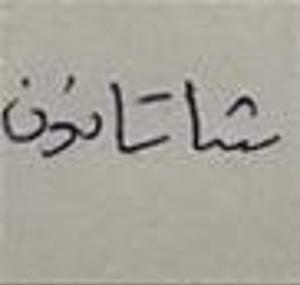 شاتانون